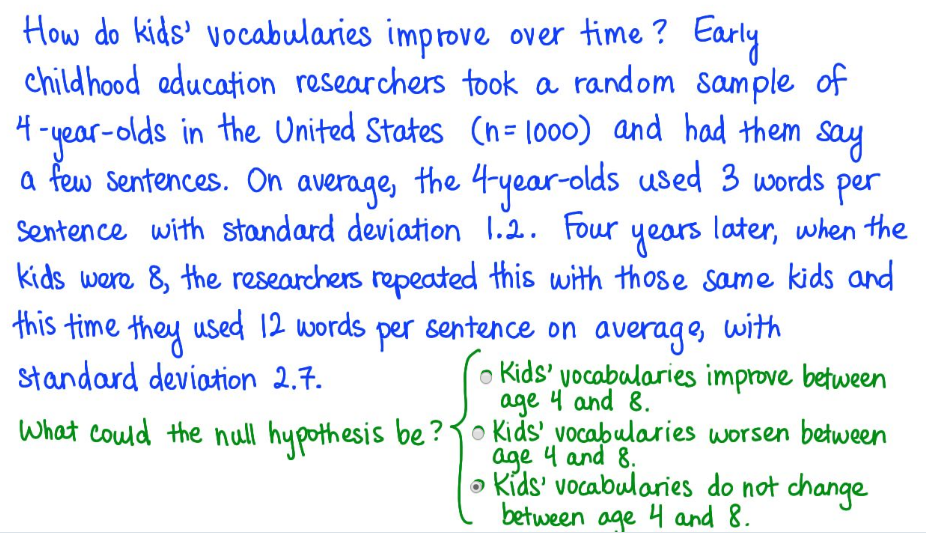 How do kids' vocabularies improve over time? Early
childhood education researchers took a random sample of
4-year-olds in the United States (n=1000) and had them say
a few sentences. On average, the 4-year-olds used 3 words per
sentence with standard deviation 1.2. Four years later, when the
kids were 8, the researchers repeated this with those same kids and
this time they used 12 words per sentence on average, with
standard deviation 2.7.
What could the null hypothesis be?
Kids' vocabularies improve between
age 4 and 8.
Kids' vocabularies worsen between
age 4 and 8.
Kids' vocabularies do not change
between age 4 and 8.